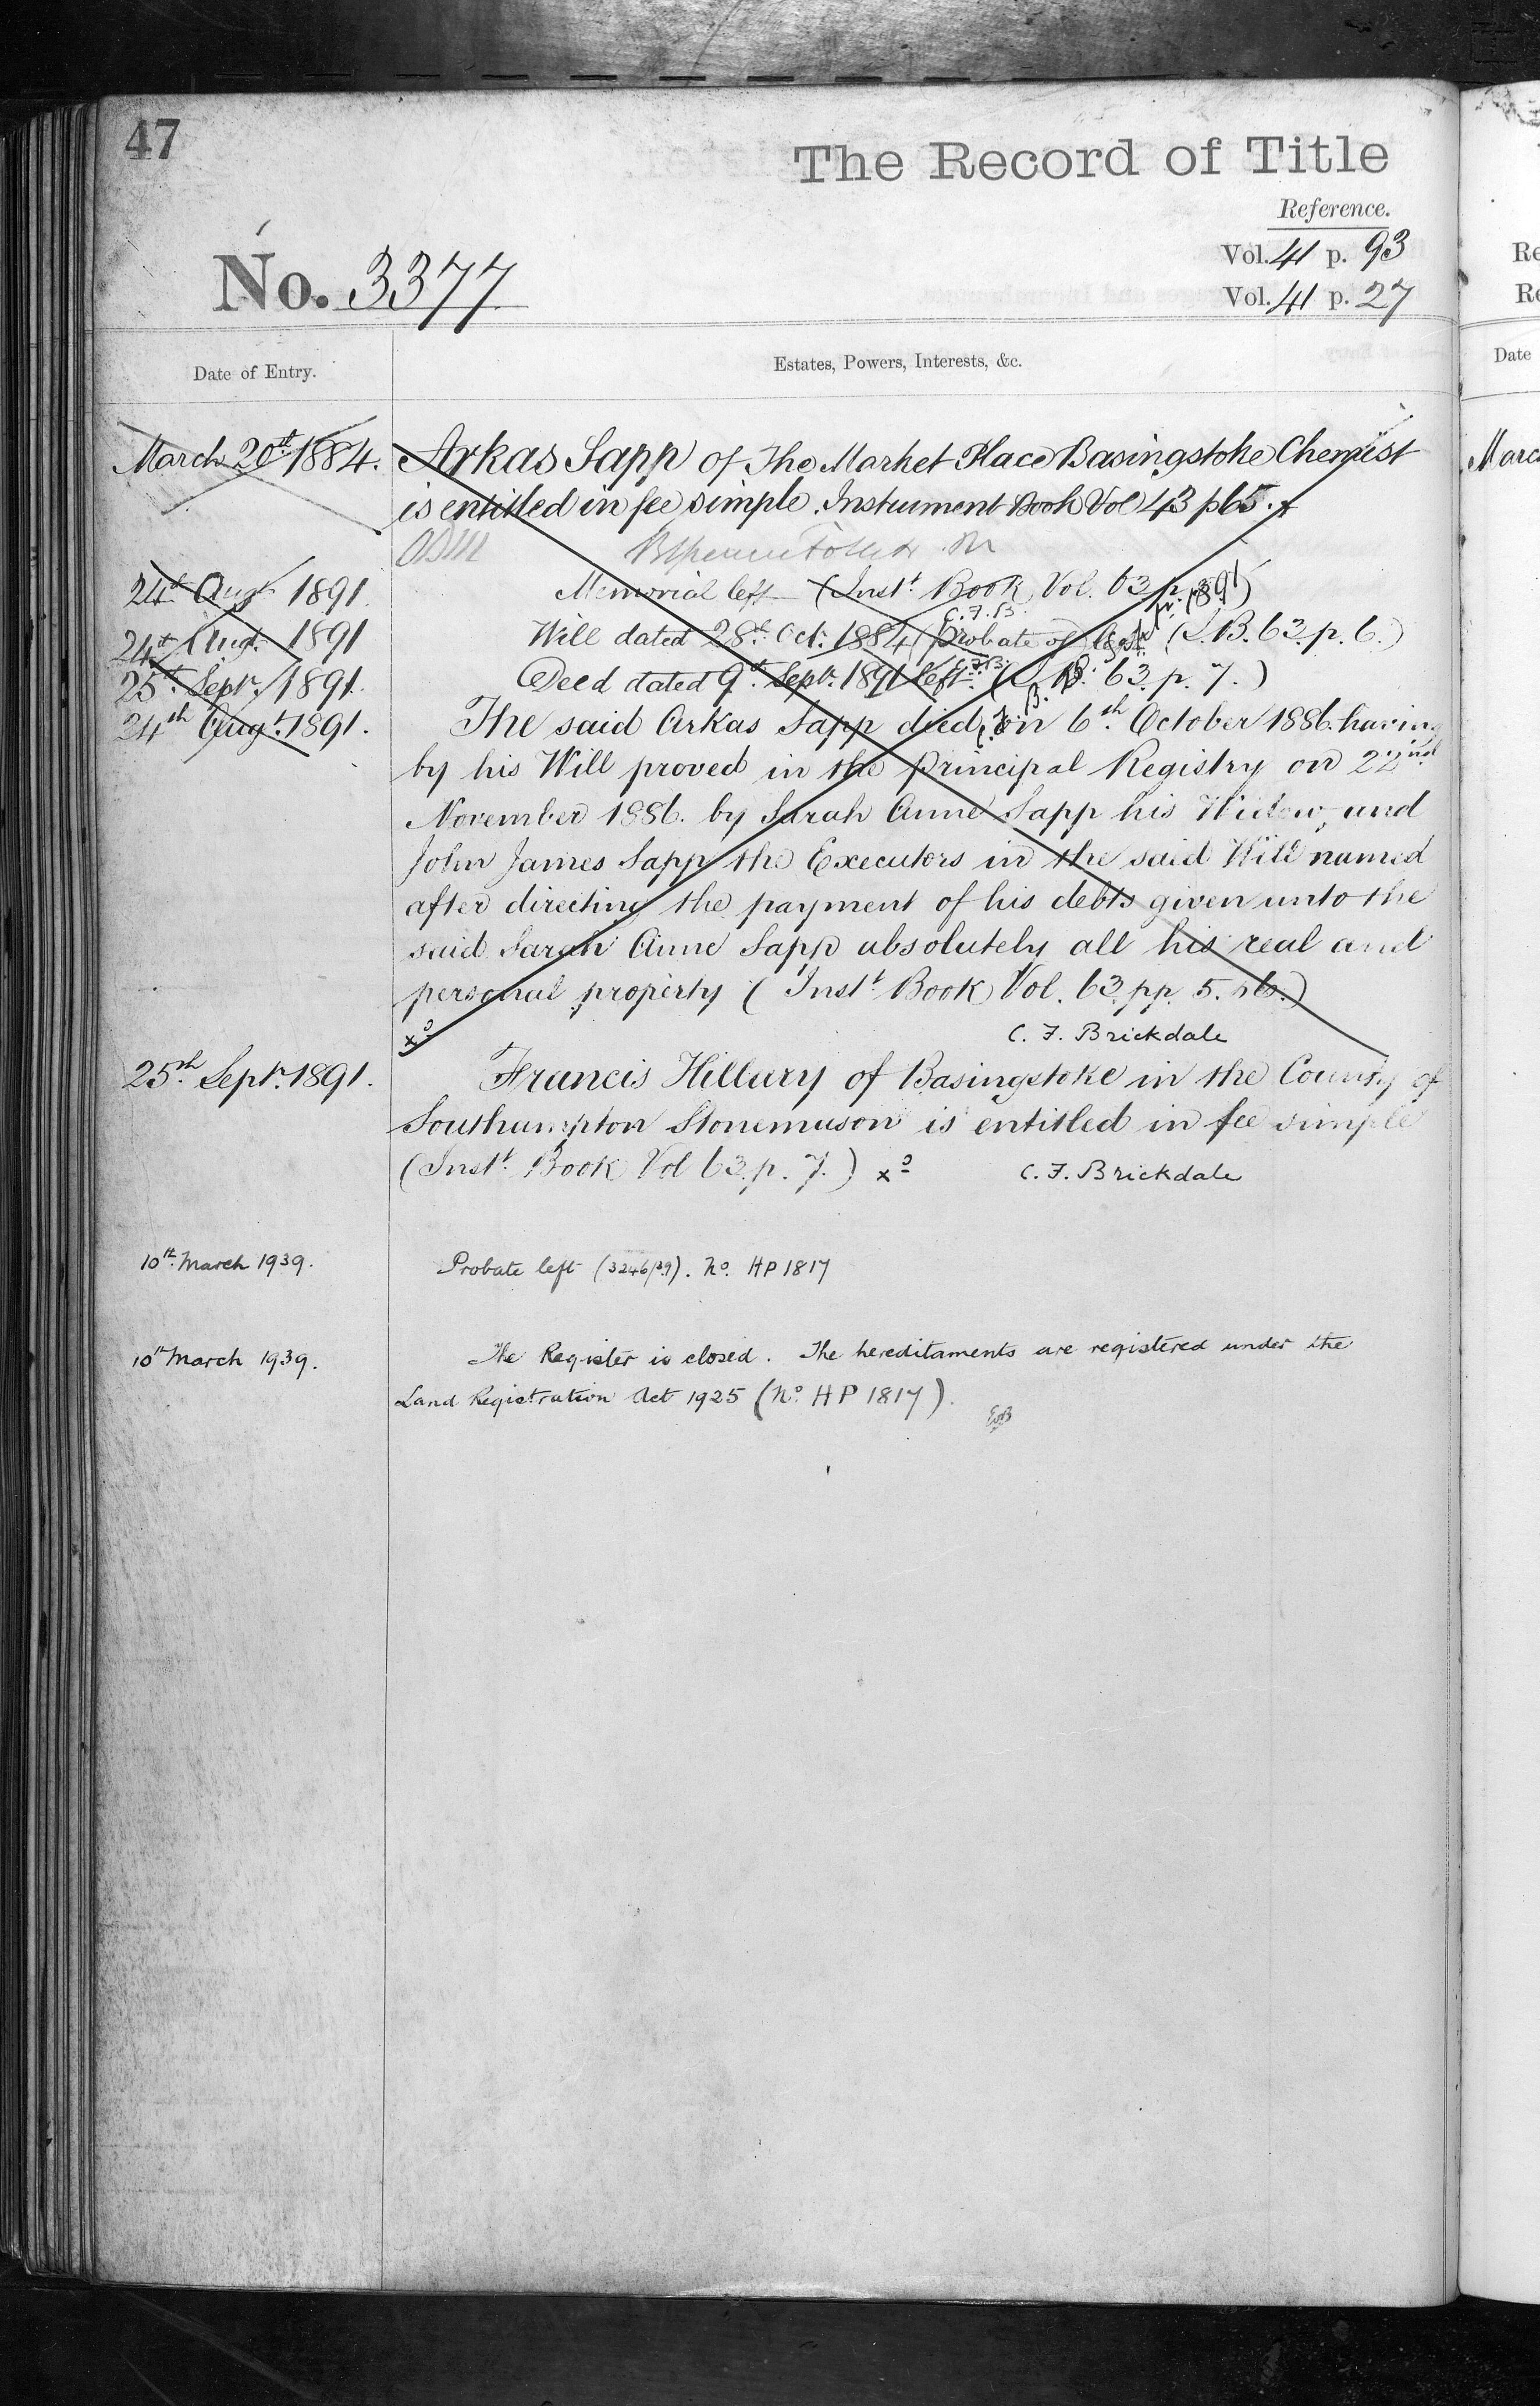 47
The Record of Title
Reference.
Vol. 41 p. 93
No. 3377
Vol. 41 p. 27
Date of Entry.
Estates, Powers, Interests, &c.
March 20th 1884. Arkas Sapp of The Market Place Basingstoke Chemist
is entitled in fee simple. Instrument Book Vol 43 p 65.
24th Augt 1891. Memorial left (Inst. Book, Vol. 63 p.
C.F.B.
24th Augt. 1891 Will dated 28th Oct. 1884 (Probate of) left (I.B. 63. p. 6.)
25th Septr. 1891. Deed dated 9th Septr. 1891 left. (I.B. 63. p. 7.)
24th Augt. 1891. The said Arkas Sapp died on 6th October 1886. having
by his Will proved in the Principal Registry on 22nd
November 1886. by Sarah Anne Sapp his Widow, and
John James Sapp the Executors in the said Will named
after directing the payment of his debts given unto the
said Sarah Anne Sapp absolutely all his real and
personal property (Instt. Book Vol. 63. pp. 5. & 6.)
C. F. Brickdale
25th Septr. 1891. Francis Hillary of Basingstoke in the County of
Southampton Stonemason is entitled in fee simple
(Instt. Book Vol 63. p. 7.) C. F. Brickdale
10th March 1939. Probate left (3246/39). No. HP 1817
10th March 1939. The Register is closed. The hereditaments are registered under the
Land Registration Act 1925 (No. HP 1817).
Re
Re
Date
Marc